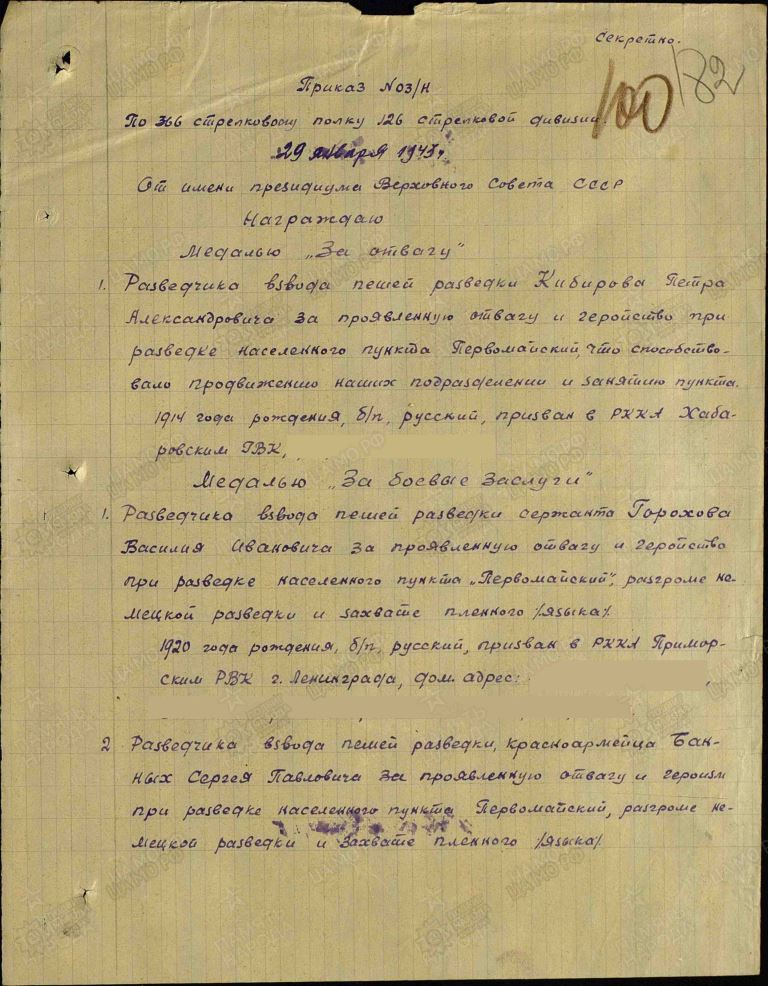 Секретно.
100
182
Приказ №03/н
По 366 стрелковому полку 126 стрелковой дивизии.
29 января 1943 г.
От имени президиума Верховного Совета СССР
Награждаю
Медалью „За отвагу"
1. Разведчика взвода пешей разведки Кибирова Петра
Александровича за проявленную отвагу и геройство при
разведке населенного пункта Первомайский, что способство-
вало продвижению наших подразделении и занятию пункта.
1914 года рождения, б/п, русский, призван в РККА Хаба-
ровским ГВК,
Медалью „За боевые заслуги"
1. Разведчика взвода пешей разведки сержанта Горохова
Василия Ивановича за проявленную отвагу и геройство
при разведке населенного пункта „Первомайский", разгроме не-
мецкой разведки и захвате пленного /языка/.
1920 года рождения, б/п, русский, призван в РККА Примор-
ским РВК г. Ленинграда, дом. адрес:
2 Разведчика взвода пешей разведки, красноармейца Бан-
ных Сергея Павловича за проявленную отвагу и героизм
при разведке населенного пункта Первомайский, разгроме не-
мецкой разведки и захвате пленного /языка/.